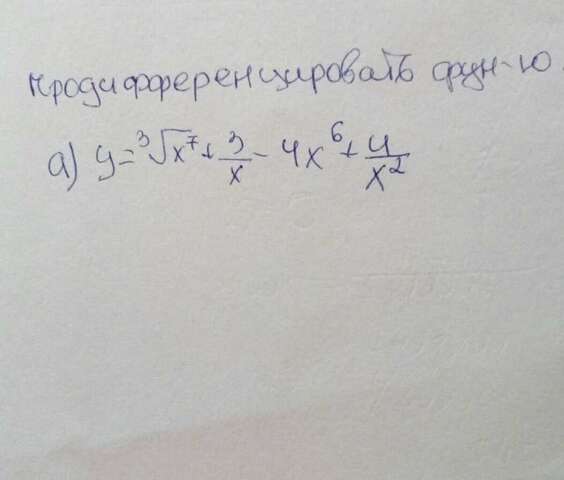 Продифференцировать фун-ю.
а) y = ³√x⁷ + 3/x - 4x⁶ + 4/x²